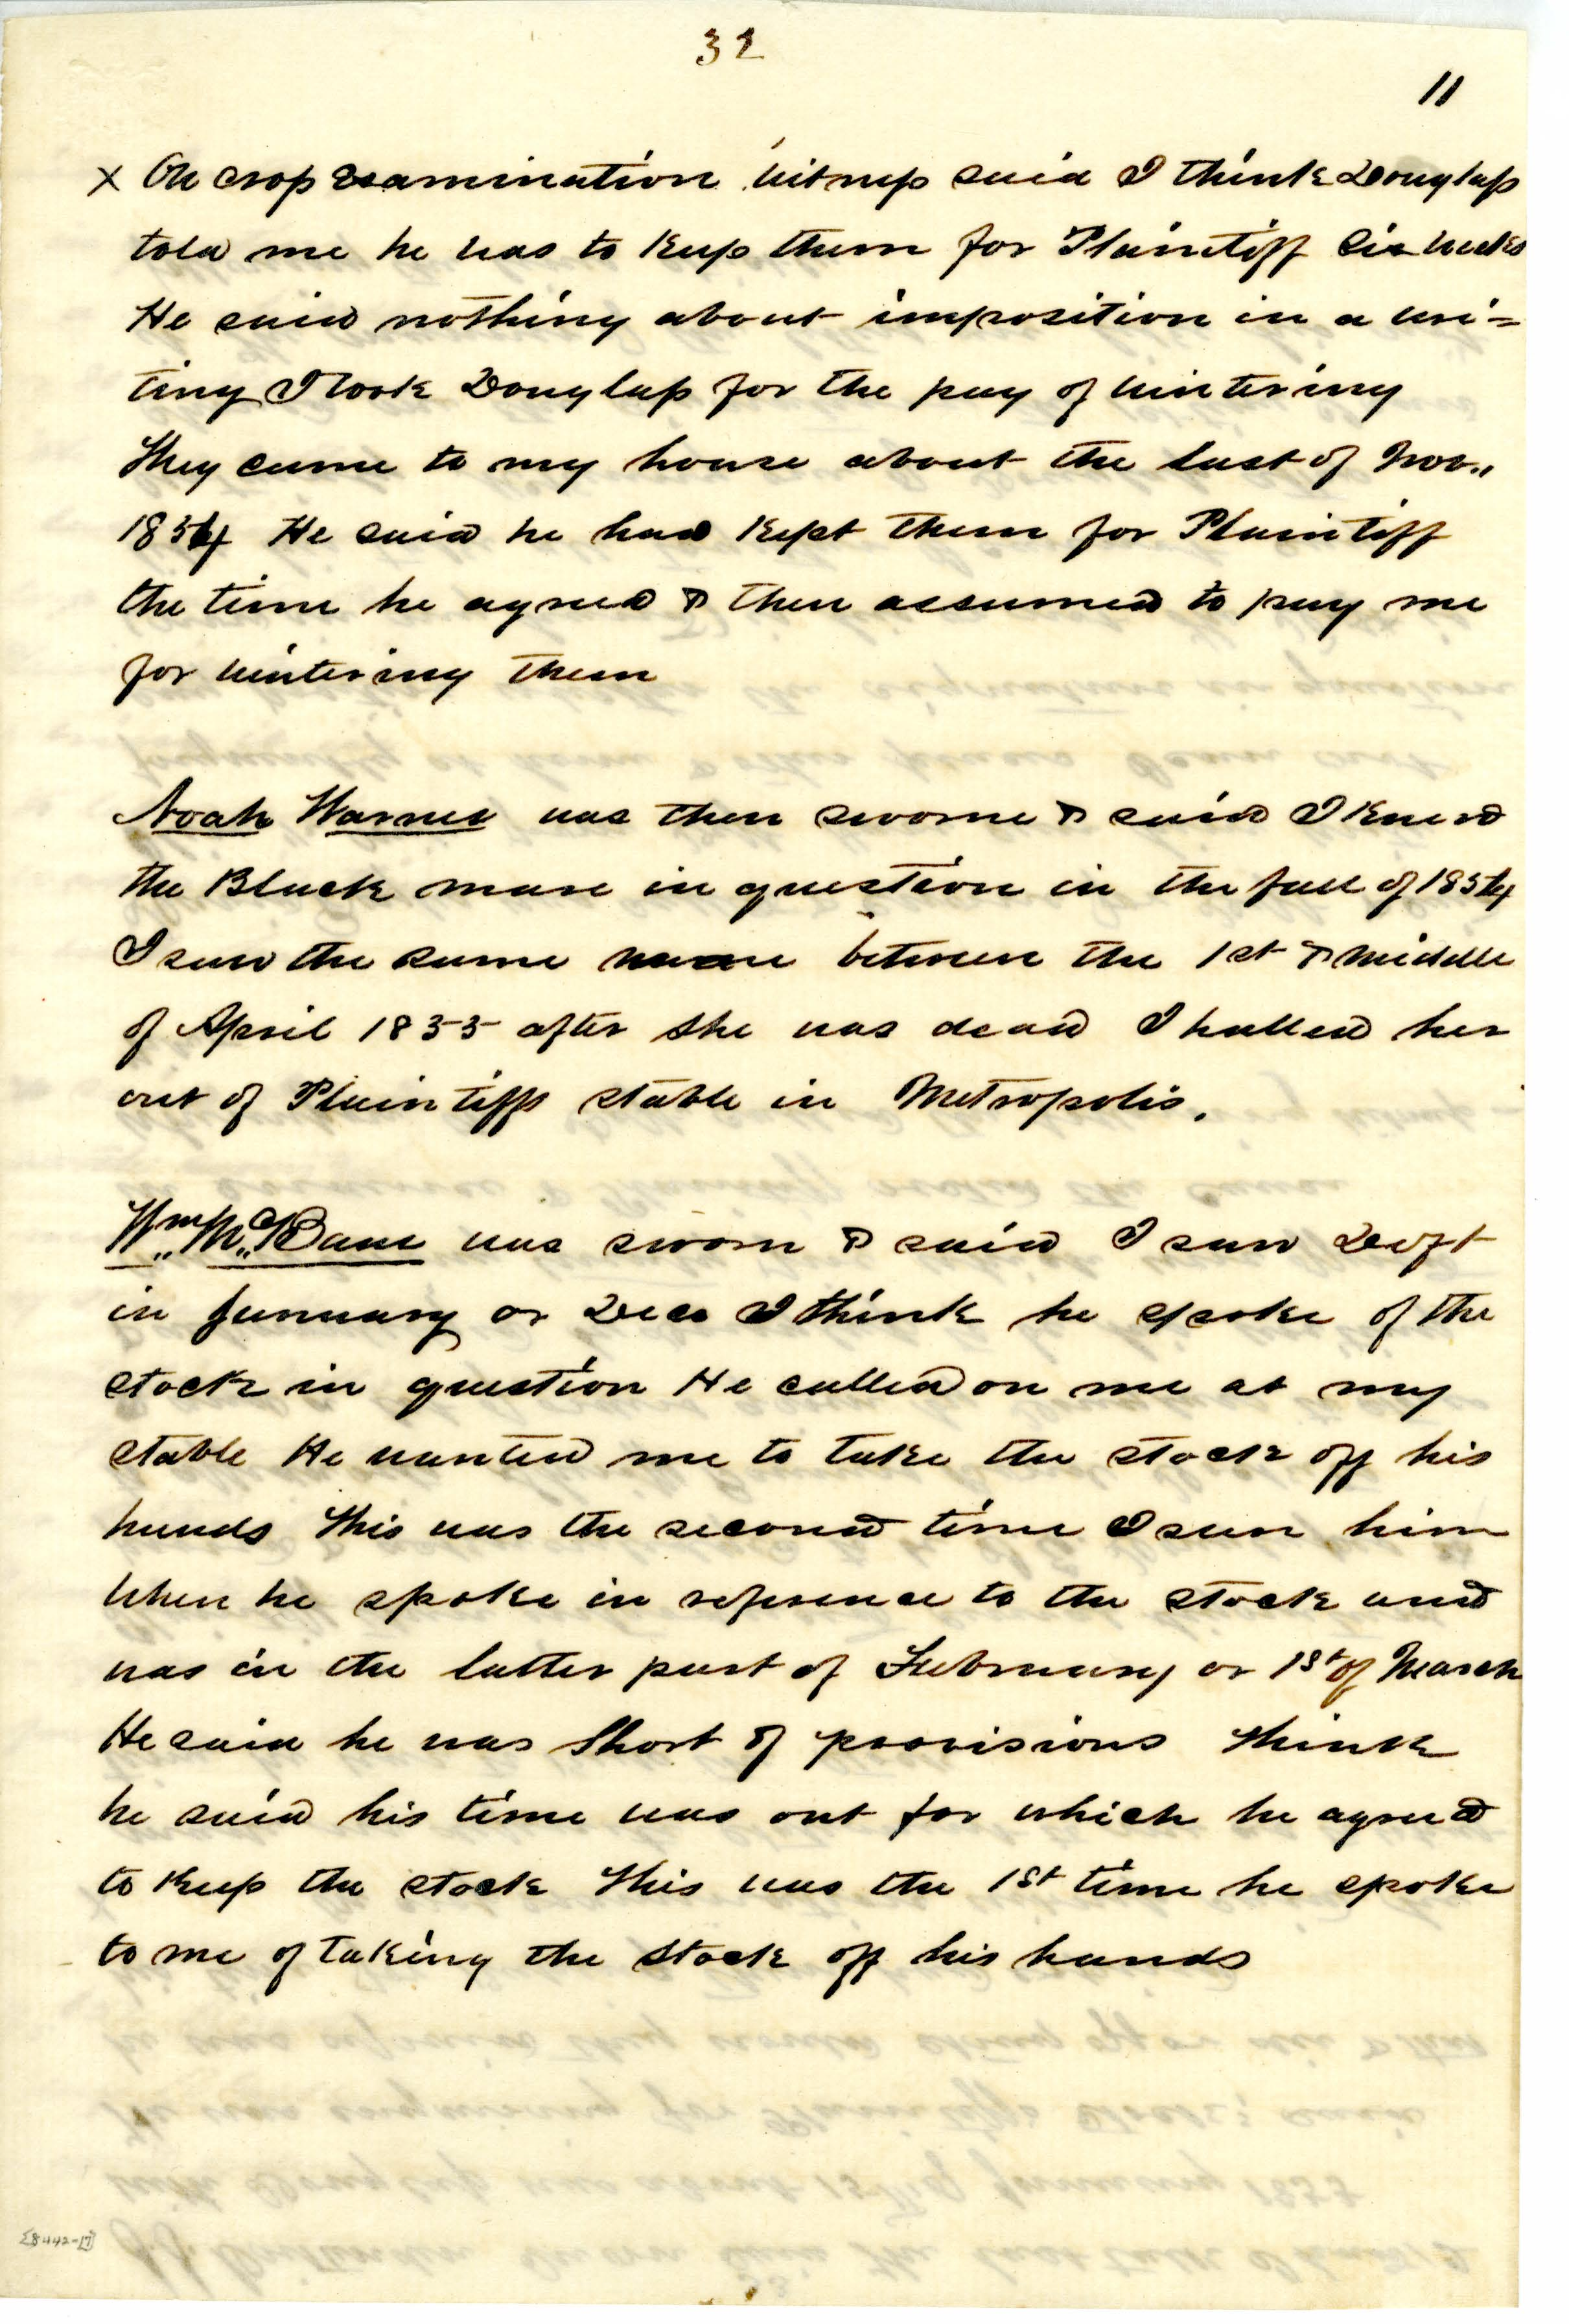 32
11
X On cross examination witness said I think Douglass
told me he was to keep them for Plaintiff six weeks
He said nothing about imposition in a wri=
ting I took Douglass for the pay of wintering
They came to my house about the last of Nov.,
1854 He said he had kept them for Plaintiff
the time he agreed & then assumed to pay me
for wintering them
Noah Warner was then sworne & said I knew
the Black mare in question in the fall of 1854
I saw the same mare between the 1st & middle
of April 1855 after she was dead I halled her
out of Plaintiffs stable in Metropolis.
Wm McBane was sworn & said I saw Deft
in January or Dec I think he spoke of the
stock in question He called on me at my
stable He wanted me to take the stock off his
hands This was the second time I saw him
when he spoke in reference to the stock and
was in the latter part of February or 1st of March
He said he was short of provisions think
he said his time was out for which he agreed
to keep the stock This was the 1st time he spoke
to me of taking the stock off his hands
[8442-17]